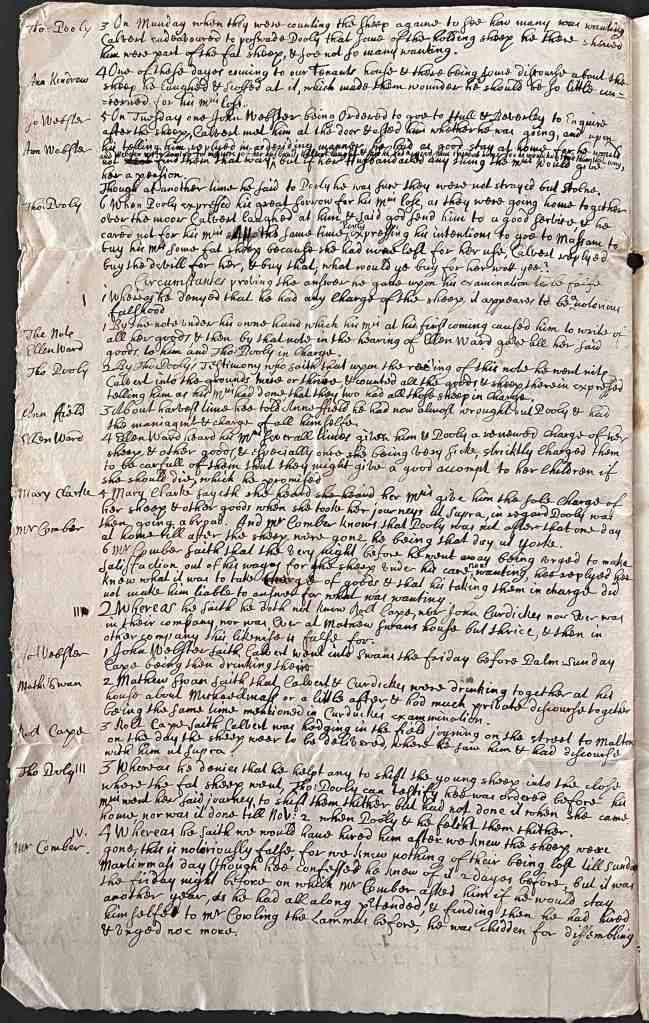 Tho: Dooly 3 On Munday when they were counting the sheep againe to see how many was wanting
Calvert endeavoured to perswade Dooly that some of the holding sheep he there shewed
him were part of the fat sheep, & soe not so many wanting.
Ann Kendrew 4 One of these dayes coming to our Tenants house & there being some discourse about the
sheep he laughed & at it, which made them wounder he should be so little con-
cerned for his Mrs loss.
Jo Webster 5 On Tuesday one John Webster being Ordered to goe to Hull & Beverley to Enquire
after the sheep, Calvert met him at the door & asked him whether he was going, and upon
Ann Webster his telling him replyed in a deriding manner, he had as good stay at home for he would
not find them that way, but if her
her a person.
Though at another time he said to Dooly he was sure they were not strayed but stolne.
Tho: Dooly 6 When Dooly expressed his great sorrow for his Mrs loss, as they were going home together
over the moor Calvert laughed at him & said god send him to a good service, & he
cared not for his Mrs All the same time Dooly expressing his intentions to goe to Massam to
buy his Mrs some fat sheep because she had none left for her use, Calvert replyed
buy the devill for her, & buy that, what would ye buy for her wott yee?
Circumstances proving the answer he gave upon his examination to be false
I Whereas he denyed that he had any Charge of the sheep, it appeares to be a notorious
falshood
The Note 1 By the note under his owne hand which his Mrs at his first coming caused him to write of
Ellen Ward all her goods & then by that note in the hearing of Ellen Ward gave all her said
goods to him and Tho: Dooly in charge.
Tho Dooly 2 By Tho: Doolys Testimony who saith that upon the rec'ing of this note he went with
Calvert into the grounds twice or thrice & counted all the goods & sheep therein expressed
telling him as his Mrs had done that they two had all those sheep in charge.
Ann ffield 3 About harvest time hee told Anne ffield he had now almost wrought out Dooly & had
the managmt & charge of all himselfe.
Ellen Ward 4 Ellen Ward heard his Mrs severall times given him & Dooly a renewed charge of her
sheep & other goods, & especially once she being very sicke, strickly charged them
to be carfull of them that they might give a good accompt to her Children if
she should die, which he promised
Mary Clarke 5 Mary Clarke sayeth she heard she heard her Mrs give him the sole Charge of
her sheep & other goods when she tooke her journeys ut Supra, in regard Dooly was
Mr Comber then going abroad. And Mr Comber knows that Dooly was not after that one day
at home till after the sheep were gone he being that day at Yorke.
6 Mr Comber saith that the very night before he went away being urged to make
satisfaction out of his wages for the sheep under his care now wanting, hee replyed hee
knew what it was to take charge of goods & that his taking them in charge did
not make him liable to answer for what was wanting
II 2 Whereas he saith he doth not know Rott Cape, nor John Curdickes nor Ever was
in their company, nor was Ever at Mathew Swans house but thrice, & then in
other company this likewise is false for.
Jo: Webster 1 John Webster saith Calvert went into Swans the friday before Palm Sunday
Cape being then drinking there
Math: Swan 2 Mathew Swan saith that Calvert & Curdickes were drinking together at his
house about Michaelmass or a little after & had much private discourse together
being the same time mentioned in Curdickes examination.
Rott Cape 3 Rott Cape saith Calvert was hedging in the field joyning on the street to Malton
on the day the sheep were to be delivered, where he saw him & had discourse
with him ut supra
Tho Dooly III 3 Whereas he denies that he helpt any to shift the young sheep into the close
where the fat sheep went, Tho: Dooly can testify hee was ordered before his
Mrs went her said journey, to shift them thither but had not done it when she came
home, nor was it done till Nov: 2 when Dooly & he fetcht them thither.
IV. 4 Whereas he saith we would have hired him after we knew the sheep were
Mr Comber. gone, this is notoriously false, for we knew nothing of their being lost till Sunday
Martinmass day (though hee confessed he knew of it 2 dayes before, but it was
the friday night before on which Mr Comber asked him if he would stay
another year, as he had all along ptended, & finding then he had hired
himselfe to Mr Cowling the Lammas before, he was chidden for dissembling
& urged noe more.